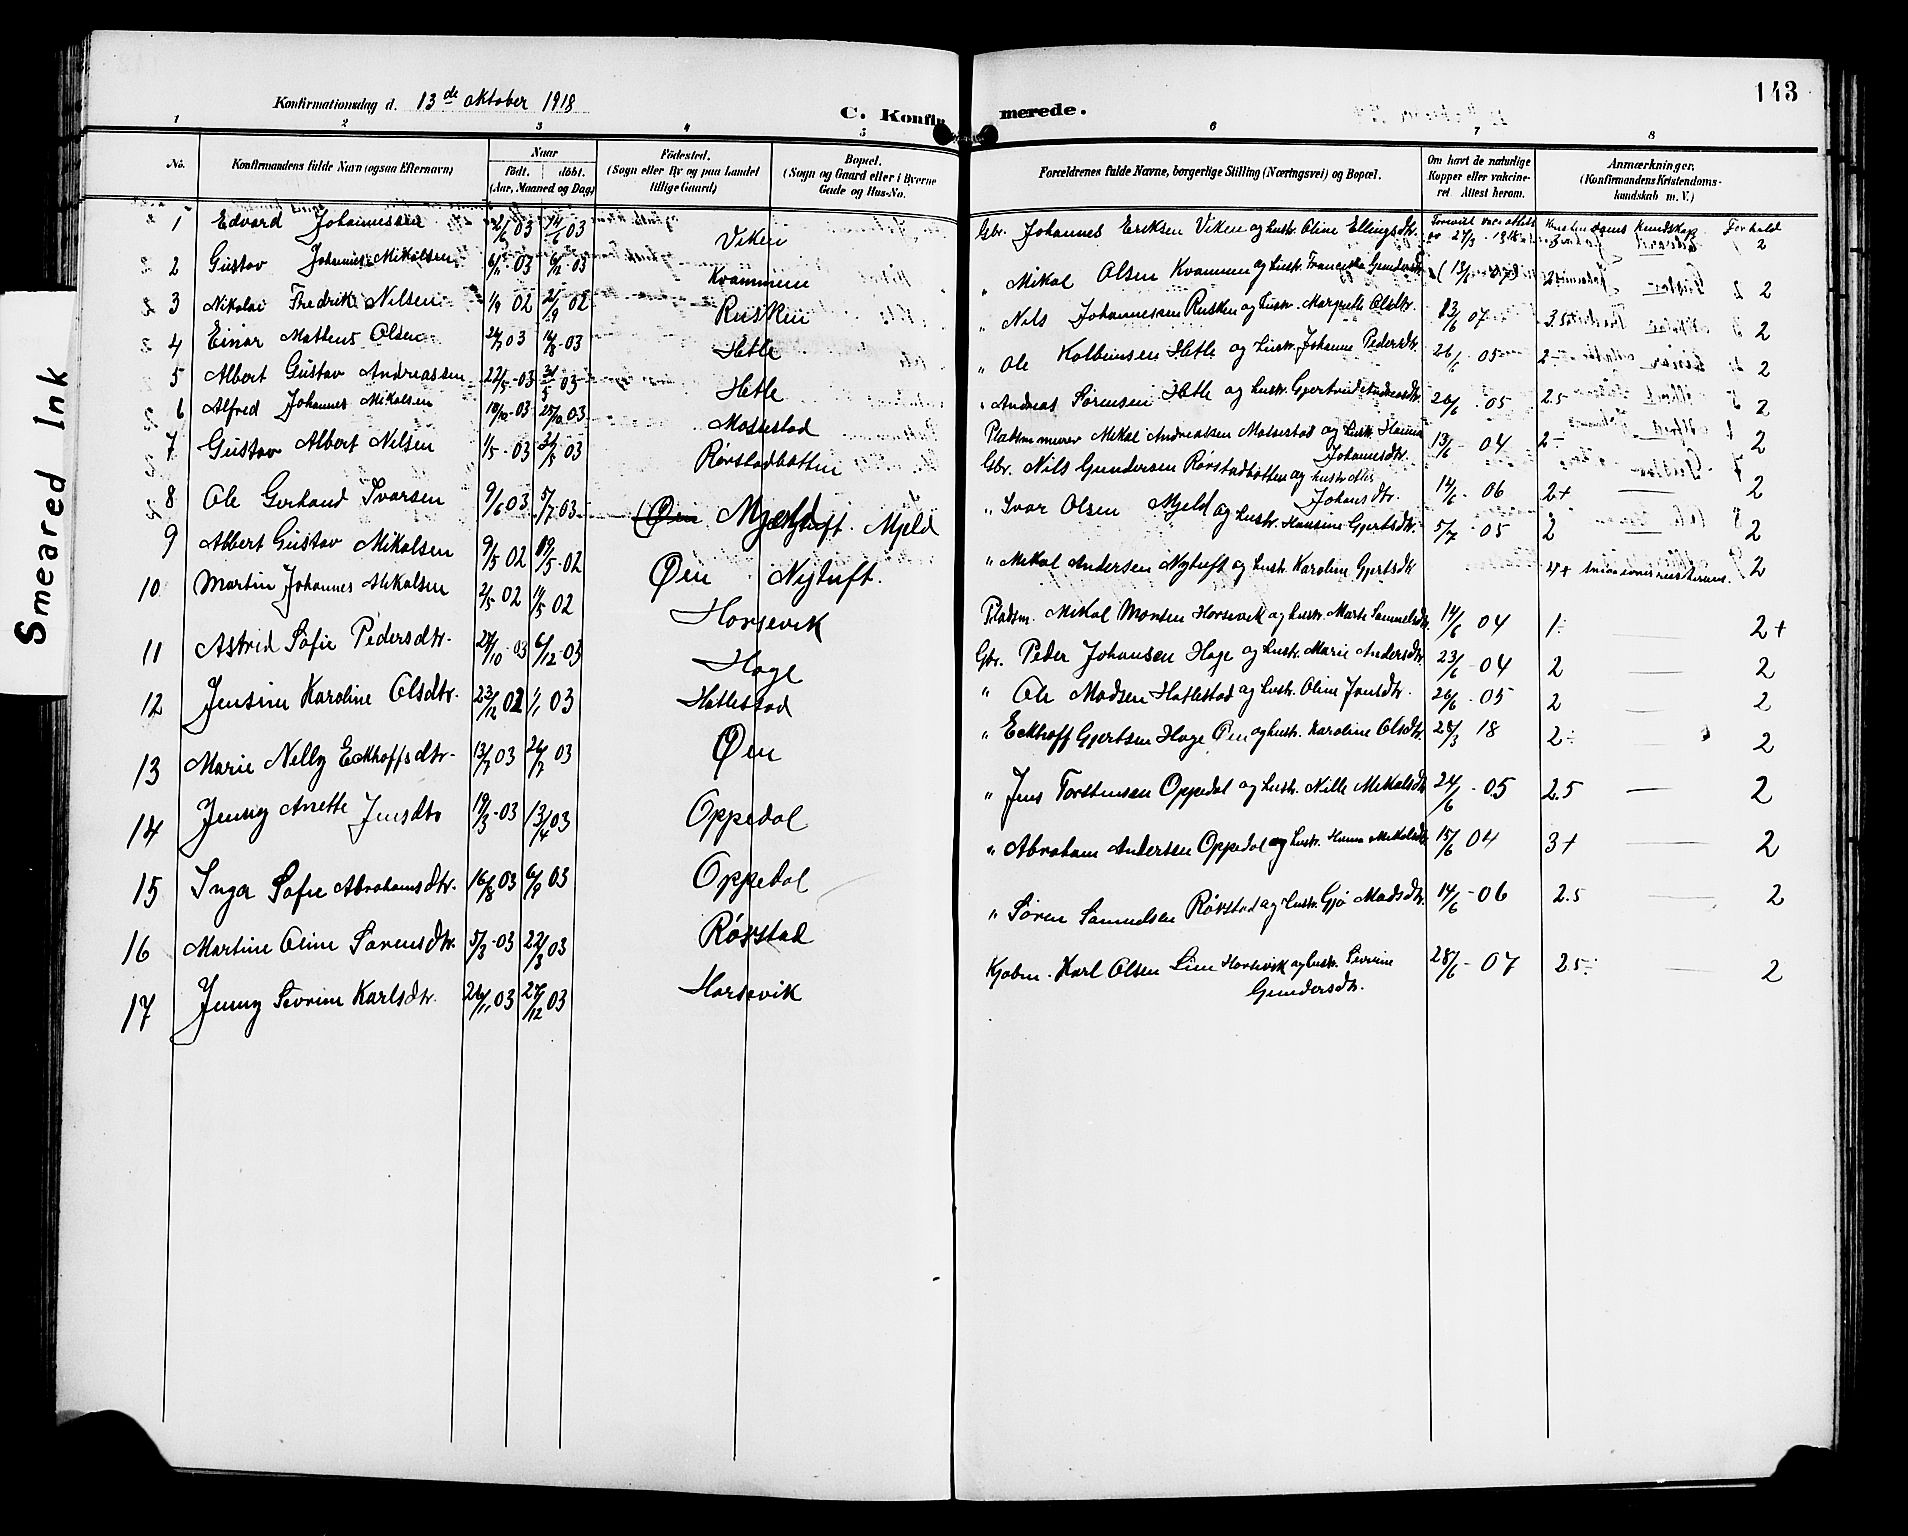 Smeared Ink
143
Konfirmationsdag d. 13de oktober 1918
C. Konfirmerede.
1 2 3 4 5 6 7 8
No. Konfirmandens fulde Navn (ogsaa Efternavn) Naar födt. döbt. (Aar, Maaned og Dag) Födested. (Sogn eller By og paa Landet tillige Gaard) Bopæl. (Sogn og Gaard eller i Byerne Gade og Hus-No. Forældrenes fulde Navne, borgerlige Stilling (Næringsvei) og Bopæl. Om havt de naturlige Kopper eller vakcineret. Attest herom. Anmærkninger. (Konfirmandens Kristendomskundskab m. V.)
Kristendoms kundskap Forhold
1 Edvard Johannessen 03 03 Viken Gbr. Johannes Eriksen Viken og hustr. Oline Ellingsdtr. 2
2 Gustav Johannes Mikalsen 6/11-03 6/12-03 Kvammene " Mikal Olsen Kvammen og hustr. Gundersdtr. 13/6 07 2 2
3 Nikolai Fredrik Nilsen 1/9 02 21/9 02 Rusken " Nils Johannessen Rusken og hustr. Margrete Olsdtr. 13/6 07 3.5 2
4 Einar Matteus Olsen 03 16/8-03 Hetle " Ole Kolbeinsen Hetle og hustr. Johanne Pedersdtr. 26/6 05 2- 2
5 Albert Gustav Andreassen 22/5-03 31/5 03 Hetle " Andreas Sørensen Hetle og hustr. Gjertrud Andreasdtr. 26/6 05 2.5 2
6 Alfred Johannes Mikalsen 10/10-03 25/10 03 Masnestad Pladsm. murer Mikal Andreassen Masnestad og hustr. Hanna Johannesdtr. 13/6-04 2- 2
7 Gustav Albert Nilsen 1/5-03 21/5 03 Rørstadbotten Gbr. Nils Gundersen Rørstadbotten og hustr. Johansdtr. 14/6-06 2+ 2
8 Ole Gerhard Ivarsen 9/6 03 5/7 03 Mjeld " Ivar Olsen Mjeld og hustr. Hansine Gjertsdtr. 5/7-05 2 2
9 Albert Gustav Mikalsen 9/5 02 19/5-02 Øen Nytuft. " Mikal Andersen Nytuft og hustr. Karoline Gjertsdtr. 4+ 2
10 Martin Johannes Mikalsen 2/5 02 11/5 02 Horsevik Pladsm. Mikal Monsen Horsevik og hustr. Marte Samuelsdtr. 14/6 04 1÷ 2+
11 Astrid Sofie Pedersdtr. 28/10-03 6/12-03 Hage Gbr. Peder Johansen Hage og hustr. Marie Andersdtr. 23/6-04 2 2
12 Jensine Karoline Olsdtr. 23/12 02 1/1 03 Hatlestad " Ole Madsen Hatlestad og hustr. Oline Jensdtr. 26/6-05 2 2
13 Marie Nelly Eckhoffsdtr. 13/7 03 26/7 03 Øen " Eckhoff Gjertsen Hage Øen og hustr. Karoline Olsdtr. 28/3 18 2÷ 2
14 Jenny Anette Jensdtr 19/3-03 13/4 03 Oppedal " Jens Torstensen Oppedal og hustr. Nille Mikalsdtr 24/6-05 2.5 2
15 Inga Sofie Abrahamsdtr. 16/8 03 6/9 03 Oppedal " Abraham Andersen Oppedal og hustr. Hanna Mikalsdtr. 15/6 04 3+ 2
16 Martine Oline Sørensdtr. 5/3-03 22/3 03 Rørstad " Søren Samuelsen Rørstad og hustr. Gjø Madsdtr. 14/6-06 2.5 2
17 Jenny Severine Karlsdtr. 26/11 03 27/12 03 Horsevik Kjøbm. Karl Olsen Lien Horsevik og hustr. Severine Gundersdtr. 28/6-07 2.5÷ 2